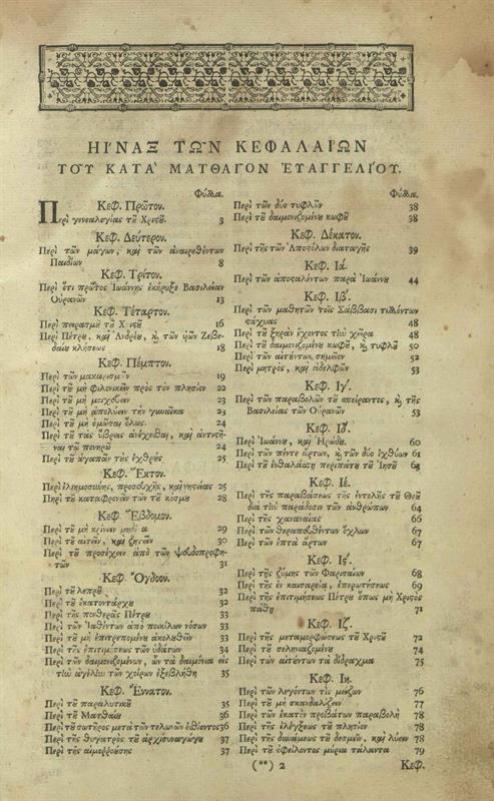 ΗΙΝΑΞ ΤΩΝ ΚΕΦΑΛΑΙΩΝ
ΤΟΥ ΚΑΤΑ ΜΑΤΘΑΓΟΝ ΕΥΑΓΓΕΛΙΌΥ.
Φύλλα.
Κεφ. Πρῶτον.
Περὶ γενεαλογίας τȣ͂ Χριςȣ͂. 3
Κεφ. Δεύτερον.
Περὶ τῶν μάγων, καὶ τῶν ἀναιρεθέντων
Παιδίων 8
Κεφ. Τρίτον.
Περὶ ὅτι πρῶτος Ἰωάννης ἐκήρυξε Βασιλείαν
Οὐρανῶν 13
Κεφ. Τέταρτον.
Περὶ πειρασμȣ͂ τȣ͂ Χριςȣ͂ 16
Περὶ Πέτρȣ, καὶ Ἀνδρέȣ, ϗ τῶν ὑῶν Ζεβε-
δαίȣ κλήσεως 18
Κεφ. Πέμπτον.
Περὶ τῶν μακαρισμῶν 19
Περὶ τȣ͂ μὴ πρὸς τὸν πλησίον 22
Περὶ τȣ͂ μὴ μοιχεύειν 23
Περὶ τȣ͂ μὴ ἀπολύειν τὴν γυναῖκα 23
Περὶ τȣ͂ μὴ ὀμῶσαι ὅλως. 24
Περὶ τȣ͂ τὰς ὕβρεις ἀνέχεσθαι, καὶ
τῷ πονηρῷ 24
Περὶ τȣ͂ ἀγαπᾶν τὰς ἐχθρȣ́ς 25
Κεφ. Ἕκτον.
Περὶ ἐλημοσύνης, προσευχῆς, καὶ νηςείας 25
Περὶ τȣ͂ καταφρονεῖν τῶν τȣ͂ κόσμȣ 28
Κεφ. Ἕβδομον.
Περὶ τȣ͂ μὴ κρίνειν 29
Περὶ τȣ͂ αἰτεῖν, καὶ ζητεῖν 30
Περὶ τȣ͂ προσέχειν ἀπὸ τῶν ψευδοπροφη-
τῶν 31
Κεφ. Ὄγδοον.
Περὶ τȣ͂ λεπρȣ͂ 32
Περὶ τȣ͂ ἑκατοντάρχȣ 32
Περὶ τῆς πενθερᾶς Πέτρȣ 33
Περὶ τῶν ἰαθέντων ἀπὸ ποικίλων νόσων 33
Περὶ τȣ͂ μὴ ἐπιτρεπομένȣ ἀκολȣθεῖν 33
Περὶ τῆς ἐπιτιμήσεως τῶν ὑδάτων 34
Περὶ τῶν δαιμονιζομένων, ὧν τὰ δαιμόνια εἰς
τὴν ἀγέλην τῶν χοίρων ἐξεβλήθη 35
Κεφ. Ἔννατον.
Περὶ τȣ͂ παραλυτικȣ͂ 35
Περὶ τȣ͂ Ματθαίȣ 36
Περὶ τȣ͂ σωτῆρος μετὰ τῶν τελωνῶν ἐσθίοντος 36
Περὶ τῆς θυγατρὸς τȣ͂ ἀρχισυναγώγȣ 37
Περὶ τῆς αἱμορροȣ́σης 37
Φύλλα.
Περὶ τῶν δύο τυφλῶν 38
Περὶ τȣ͂ δαιμονιζομένȣ κωφȣ͂ 38
Κεφ. Δέκατον.
Περὶ τῆς τῶν Ἀποςόλων διαταγῆς 39
Κεφ. Ιά.
Περὶ τῶν ἀποςαλέντων παρὰ Ἰωάννȣ 44
Κεφ. Ιβ́.
Περὶ τῶν μαθητῶν τοῖς Σάββασι τιλλόντων
ςάχυας 48
Περὶ τȣ͂ ξηρὰν ἔχοντος τὴν χεῖρα 48
Περὶ τȣ͂ δαιμονιζομένȣ κωφȣ͂, ϗ τυφλȣ͂ 50
Περὶ τῶν αἰτȣ́ντων σημεῖον 52
Περὶ μητρὸς, καὶ ἀδελφῶν 53
Κεφ. Ιγ́.
Περὶ τῶν παραβολῶν τȣ͂ σπείραντος, ϗ τῆς
Βασιλείας τῶν Οὐρανῶν 53
Κεφ. Ιδ́.
Περὶ Ἰωάννȣ, καὶ Ἡρώδȣ 60
Περὶ τῶν πέντε ἄρτων, ϗ τῶν δύο ἰχθύων 61
Περὶ τȣ͂ ἐνθαλάσσῃ περιπάτȣ τȣ͂ Ἰησȣ͂ 63
Κεφ. Ιέ.
Περὶ τῆς παραβάσεως τῆς ἐντολῆς τȣ͂ Θεȣ͂
διὰ τὴν παράδοσιν τῶν ἀνθρώπων 64
Περὶ τῆς χαναναίας 66
Περὶ τῶν θεραπευθέντων ὄχλων 67
Περὶ τῶν ἑπτὰ ἄρτων 67
Κεφ. Ις́.
Περὶ τῆς ζύμης τῶν Φαρισαίων 68
Περὶ τῆς ἐν καισαρείᾳ, ἐπερωτήσεως 69
Περὶ τῆς ἐπιτιμήσεως Πέτρȣ ὅπως μὴ Χριςὸς
πάθῃ 71
Κεφ. Ιζ́.
Περὶ τῆς μεταμορφώσεως τȣ͂ Χριςȣ͂ 72
Περὶ τȣ͂ σεληνιαζομένȣ 74
Περὶ τῶν αἰτȣ́ντων τὰ δίδραχμα 75
Κεφ. Ιη.
Περὶ τῶν λεγόντων τίς μείζων 76
Περὶ τȣ͂ μὴ σκανδαλίζειν 77
Περὶ τῶν ἑκατὸν προβάτων παραβολὴ 78
Περὶ τῆς ἐλέγξεως τȣ͂ πλησίον 78
Περὶ τῆς δυνάμεως τȣ͂ δεσμεῖν, καὶ λύειν 78
Περὶ τȣ͂ ὀφείλοντος μύρια τάλαντα 79
(**) 2 Κεφ.